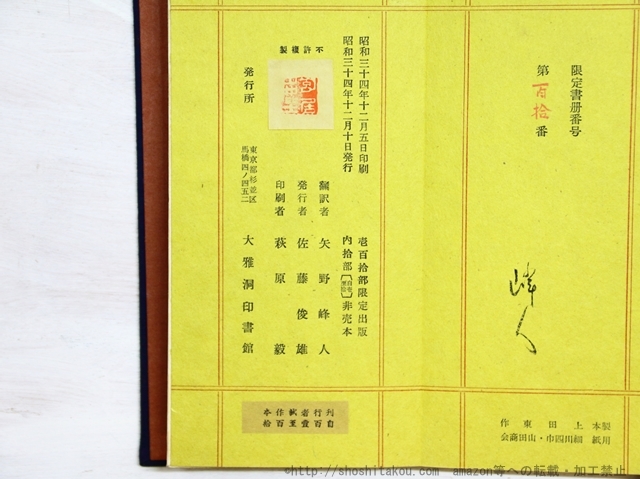 限定書册番号
第百拾番
峰人
製本 上田東作
用紙 細川四巾・山田商会
昭和三十四年十二月五日印刷
昭和三十四年十二月十日発行
壱百拾部限定出版
非売本
不許複製
飜訳者 矢野峰人
発行者 佐藤俊雄
印刷者 萩原毅
発行所
東京都杉並区
馬橋四ノ四五二
大雅洞印書館
©http://shoshitakou.com amazon等への転載・加工禁止